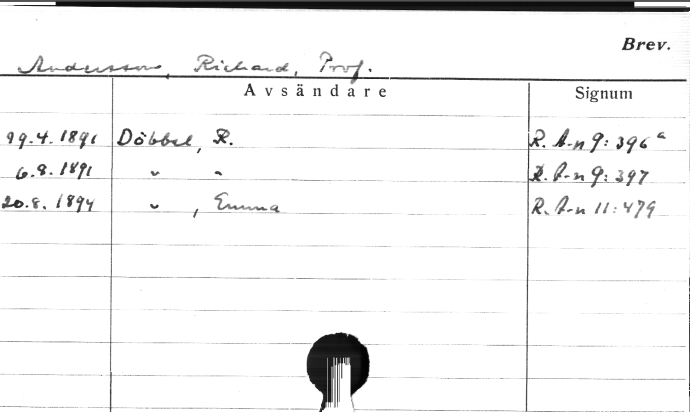 Brev.
Andersson, Richard, Prof.
Avsändare Signum
29.4.1891 Döbbel, R. R. A-n 9:396 a
6.8.1891 " " R. A-n 9:397
20.8.1894 " , Emma R. A-n 11:479